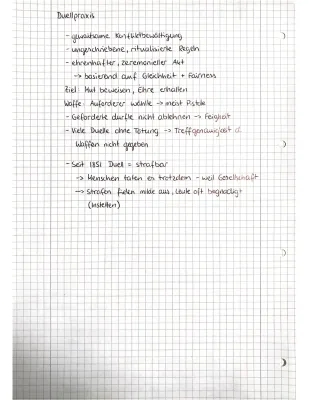 Duellpraxis
- gewaltsame Konfliktbewältigung
- ungeschriebene, ritualisierte Regeln
- ehrenhafter, zeremonieller Akt
→ basierend auf Gleichheit + Fairness
Ziel: Mut beweisen, Ehre erhalten
Waffe: Auforderer wählte → meist Pistole
- Geforderte durfte nicht ablehnen → Feigheit
- Viele Duelle ohne Tötung → Treffgenauigkeit d.
Waffen nicht gegeben
- Seit 1851 Duell = strafbar
→ Menschen taten es trotzdem - weil Gesellschaft
→ Strafen fielen milde aus, Leute oft begnadigt